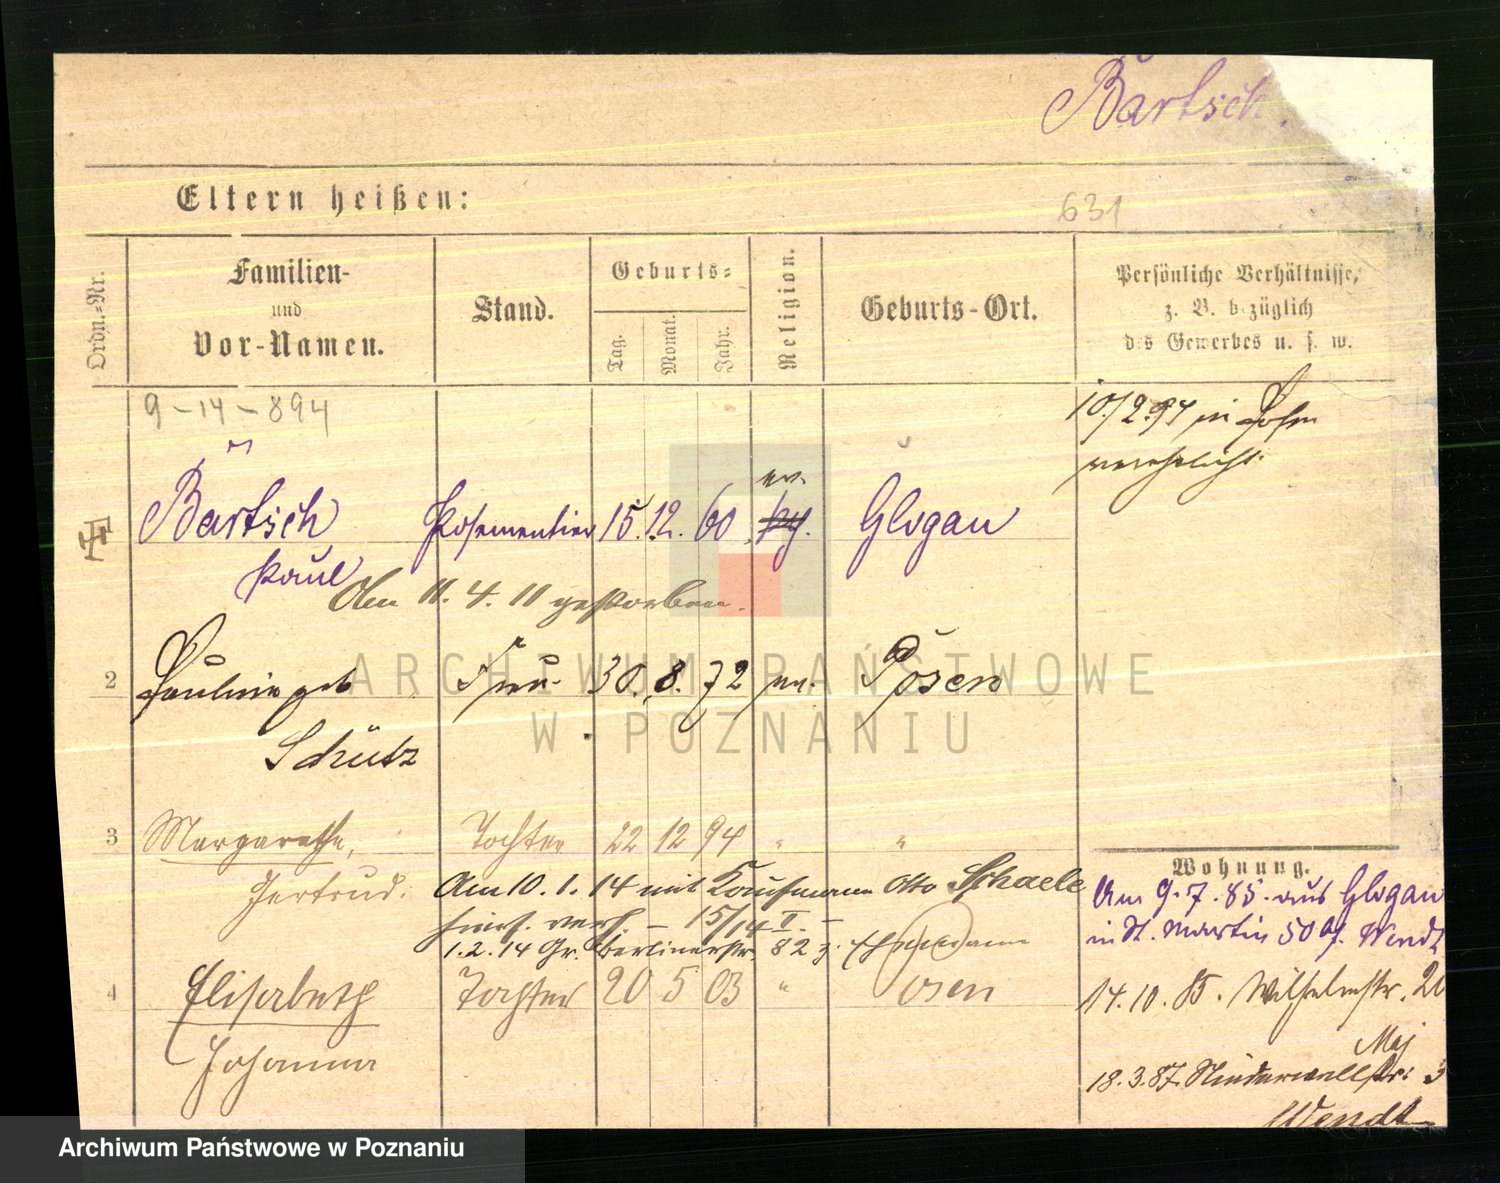 Bartsch.
Eltern heißen:
631
Ordn.-Nr.
Familien-
und
Vor-Namen.
Stand.
Geburts-
Tag.
Monat.
Jahr.
Religion.
Geburts-Ort.
Persönliche Verhältnisse,
z. B. bezüglich
des Gewerbes u. s. w.
9-14-894
10/2.94 in Posen
verehelicht.
ev.
Bartsch Posementier 15. 12. 60 Glogau
Paul
Am 11. 4. 11 gestorben.
2 Pauline geb Frau. 30. 8. 72 ev. Posen
Schütz
3 Margarethe, Tochter 22 12 94 " "
Gertrud.
Am 10. 1. 14 mit Kaufmann Otto Schaele
hiers. verh. — 15/14 II. —
1. 2. 14 Gr. Berlinerstr. 82 z. Ehemann
4 Elisabeth Tochter 20 5 03 " Posen
Johanna
Wohnung.
Am 9. 7. 85. aus Glogau
in St. Martin 50 b/. Wendt
14. 10. 85. Wilhelmstr. 2
May
18. 3. 87. Niederwallstr: 3
Wendt
ARCHIWUM PAŃSTWOWE
W POZNANIU
Archiwum Państwowe w Poznaniu